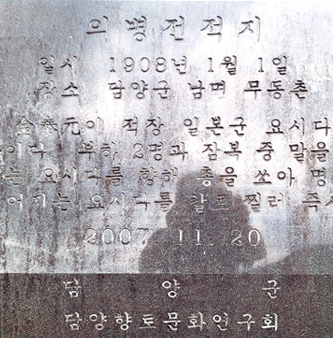 의병전적지
일시 1908년 1월 1일
장소 담양군 남면 무동촌
金泰元이 적장 일본군 요시다
부하 2명과 잠복 중 말을
는 요시다를 향해 총을 쏘아 명
어기는 요시다를 칼로 찔러 즉시
2007. 11. 20
담양군
담양향토문화연구회